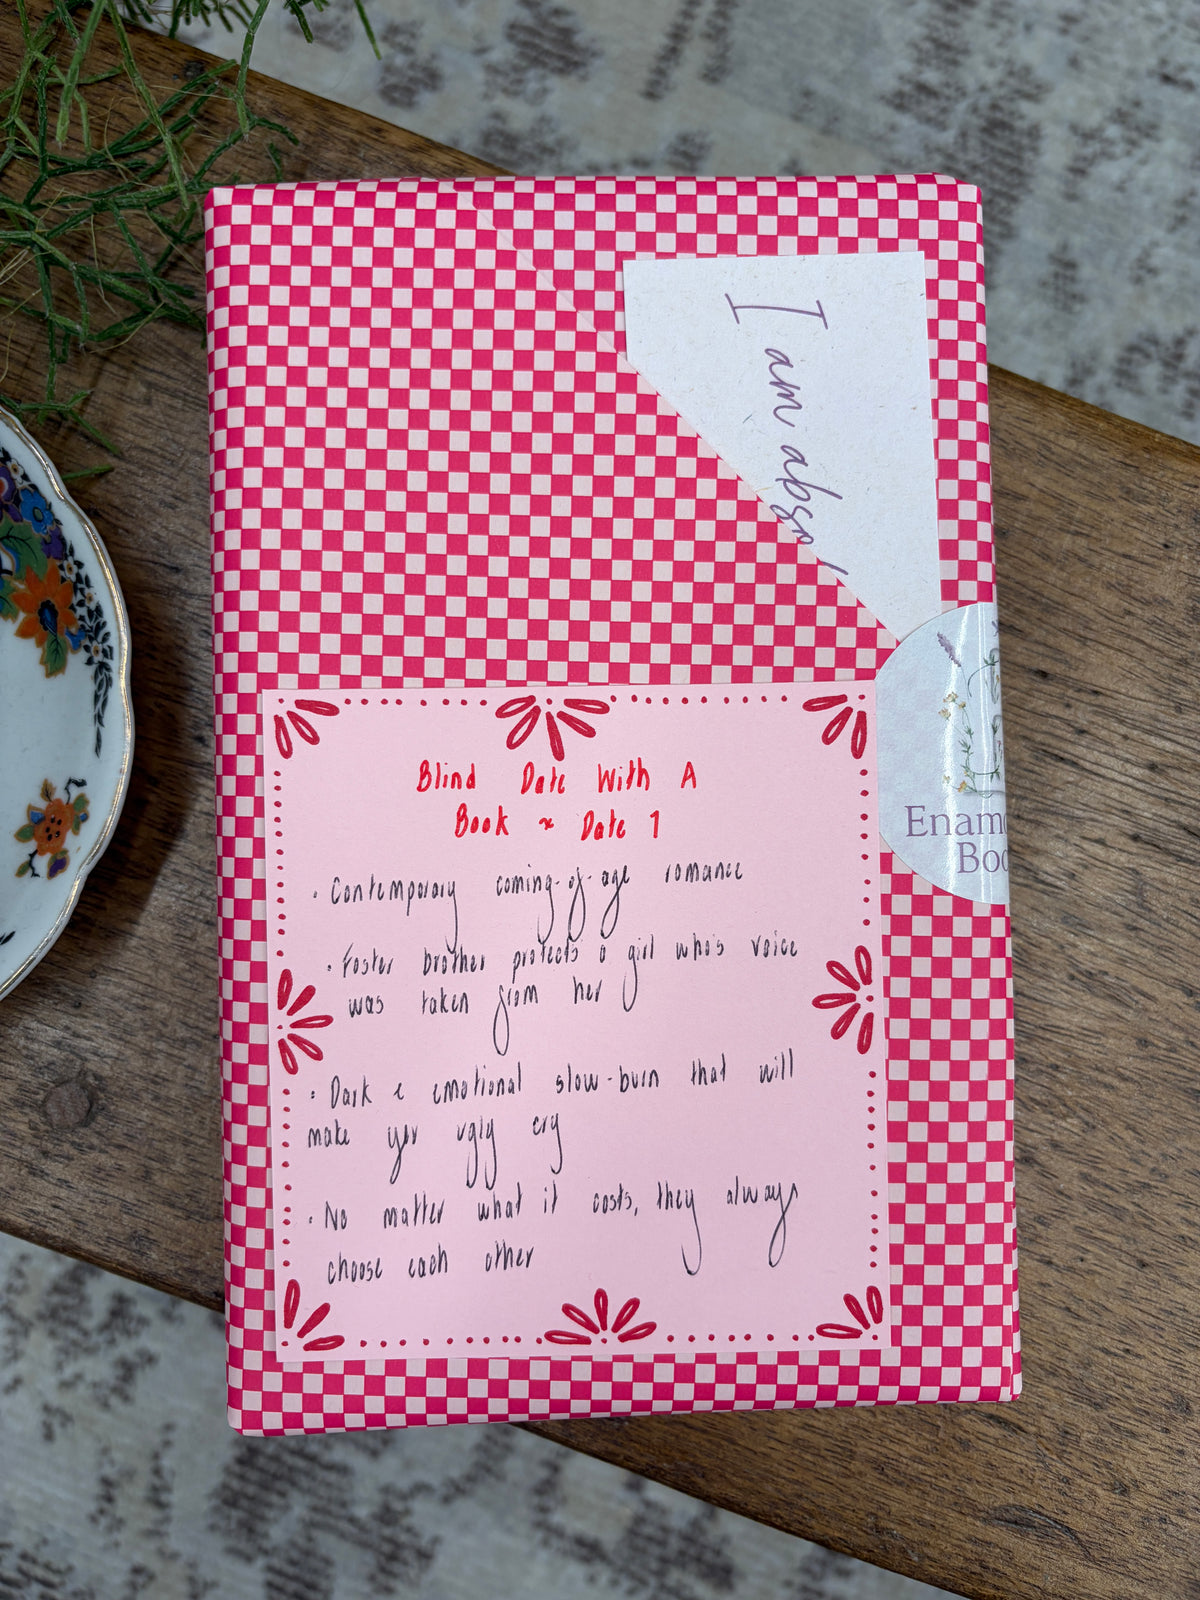 I am abso
Enam
Boo
Blind Date With A
Book ~ Date 1
· Contemporary coming-of-age romance
· Foster brother protects a girl who's voice
was taken from her
· Dark & emotional slow-burn that will
make you ugly cry
· No matter what it costs, they always
choose each other